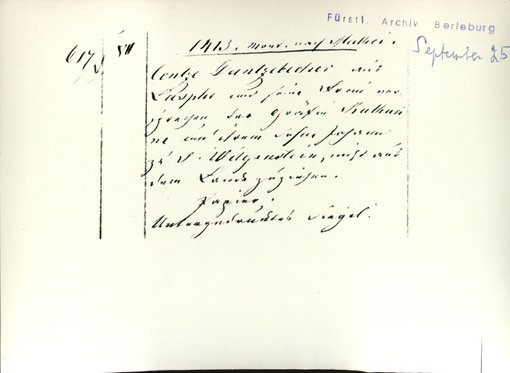 Fürstl. Archiv Berleburg
September 25
617 51
1413. mont. nach Mathei.
Contze Dantzebecher aus
Lasphe und seine Frau ver
sprechen der Gräfin Kathari
ne und ihrem Sohn Johann
zu S. Witgenstein, nicht aus
dem Lande zu ziehen.
Papier.
Untergedrucktes Siegel.